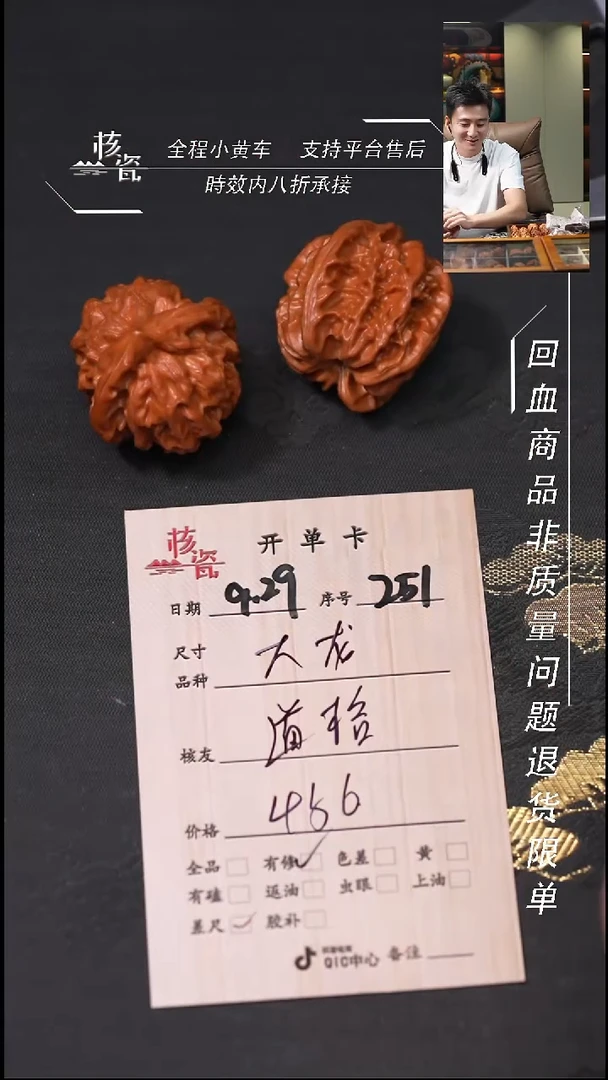 核瓷
全程小黄车 支持平台售后
時效内八折承接
回血商品非质量问题退货限单
核瓷
开单卡
日期 9.29 序号 251
尺寸
品种 大龙
核友 道怡
价格 456
全品 有修 色差 黄
有磕 返油 虫眼 上油
差尺 胶补
QIC中心 备注